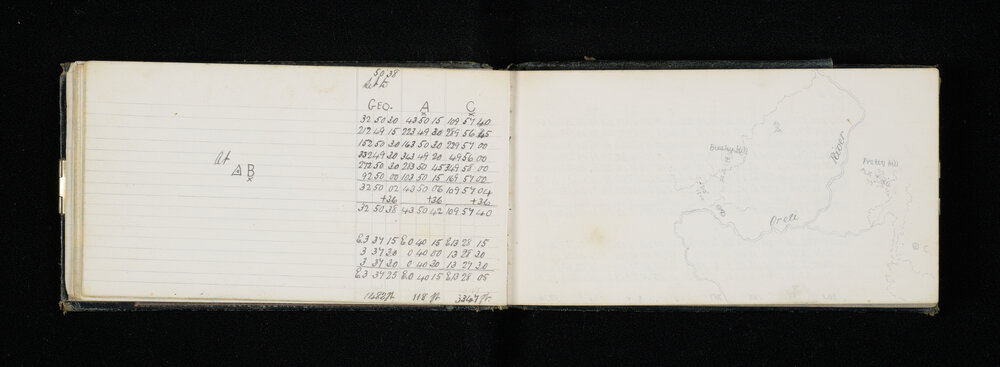 50 38
Set to
GEO. A C
32 50 30 43 50 15 109 57 40
212 49 15 223 49 30 289 56 45
152 50 30 163 50 30 229 57 00
332 49 30 343 49 20 49 56 00
272 50 30 283 50 45 349 58 00
92 50 00 103 50 15 169 57 00
32 50 02 43 50 06 109 57 04
+36 +36 +36
32 50 38 43 50 42 109 57 40
At
A B
E3 37 15 E0 40 15 E13 28 15
3 37 30 0 40 00 13 28 30
3 37 30 0 40 30 13 27 30
E3 37 25 E0 40 15 E13 28 05
118 ft
River
Bushy hill